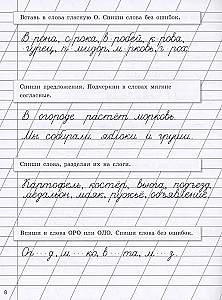 Вставь в слова гласную О. Спиши слова без ошибок.
В рона, с рока, в робей, к рова,
гурец, п мидор, м рковь, г рох.
Спиши предложения. Подчеркни в словах мягкие
согласные.
В огороде растёт морковь.
Мы собирали яблоки и груши.
Спиши слова, разделяя их на слоги.
Картофель, костёр, вьюга, подъезд,
медальон, маяк, ружьё, объявление.
Впиши в слова ОРО или ОЛО. Спиши слова без ошибок.
Ог д, м ко, в та, м з.
8